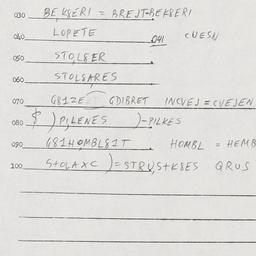 030 BEKSERI = BREJT-BEKSERI
040 LOPETE 041 CVESN
050 STOLSER
060 STOLSARES
070 GDIBRET INCVEJ = CVEJEN
080 $ ) PILENES )-PILKES
090 G81HOMBL81T HOMBL = HEMB
100 STOLAXC )= STRUS+K8ES QRUS